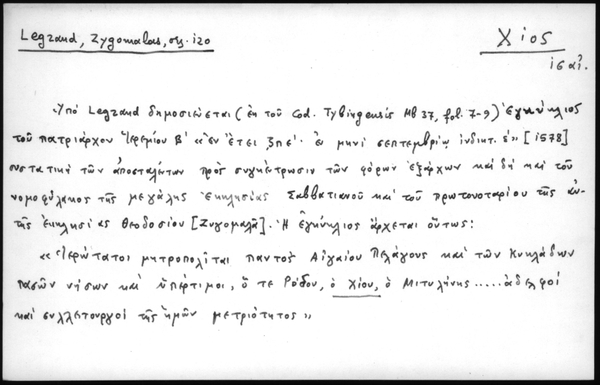 Legrand, Zygomalas, σελ. 120
Χίος
ις αἰ.
Ὑπό Legrand δημοσιεύεται (ἐκ τοῦ Cod. Tybingensis Mb 37, fol. 7-9) ἐγκύκλιος
τοῦ πατριάρχου Ἱερεμίου Β' «ἐν ἔτει ζπε' ἐν μηνί σεπτεμβρίῳ ἰνδικτ. ς'» [1578]
συστατική τῶν ἀποσταλέντων πρός συγκέντρωσιν τῶν φόρων ἐξάρχων καί δή καί τοῦ
νομοφύλακος τῆς μεγάλης ἐκκλησίας Σαββατιανοῦ καί τοῦ πρωτονοταρίου τῆς αὐ-
τῆς ἐκκλησίας Θεοδοσίου [Ζυγομαλᾶ]. Ἡ ἐγκύκλιος ἄρχεται οὕτως:
«Ἱερώτατοι μητροπολῖται παντός Αἰγαίου Πελάγους καί τῶν Κυκλάδων
πασῶν νήσων καί ὑπέρτιμοι, ὅ τε Ρόδου, ὁ Χίου, ὁ Μιτυλήνης ..... ἀδελφοί
καί συλλειτουργοί τῆς ἡμῶν μετριότητος»